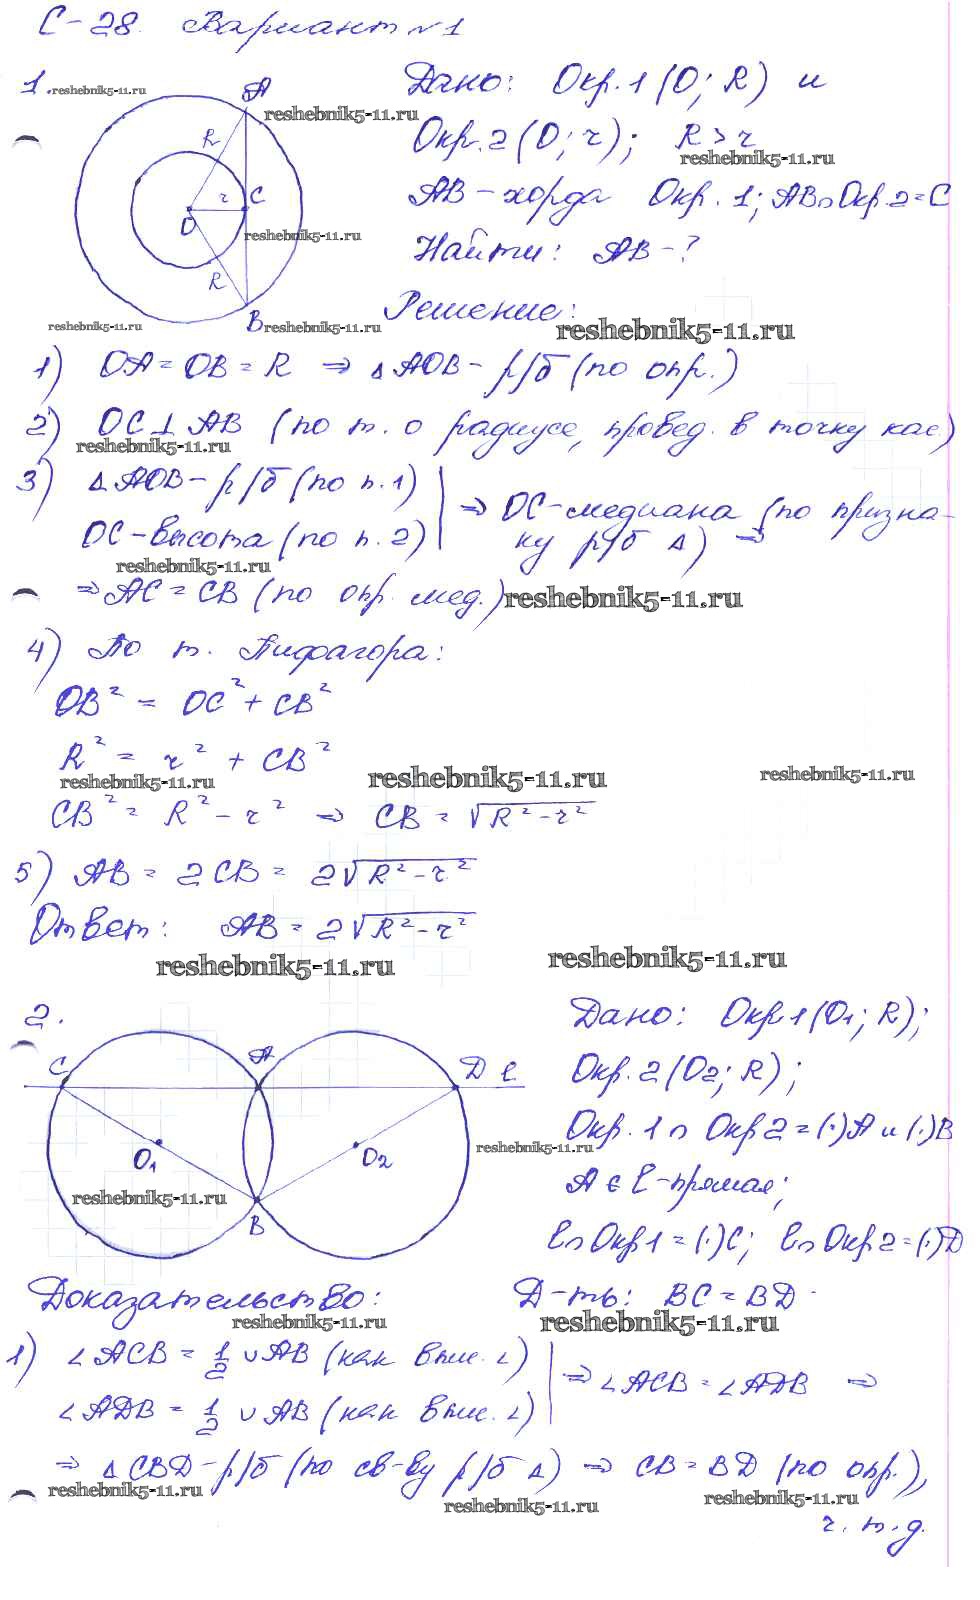 С-28. Вариант №1
1.
reshebnik5-11.ru
A
reshebnik5-11.ru
R
r
C
O
reshebnik5-11.ru
R
B
reshebnik5-11.ru
reshebnik5-11.ru
Дано: Окр.1 (O; R) и
Окр.2 (O; r); R > r
reshebnik5-11.ru
AB - хорда Окр.1; AB∩Окр.2 = C
Найти: AB - ?
Решение:
reshebnik5-11.ru
1) OA = OB = R ⇒ △AOB - р/б (по опр.)
2) OC ⊥ AB (по т. о радиусе, провед. в точку кас.)
reshebnik5-11.ru
3) △AOB - р/б (по п.1) | ⇒ OC - медиана (по призна-
OC - высота (по п. 2) | ку р/б △) ⇒
reshebnik5-11.ru
⇒ AC = CB (по опр. мед.)
reshebnik5-11.ru
4) По т. Пифагора:
OB² = OC² + CB²
R² = r² + CB²
reshebnik5-11.ru
reshebnik5-11.ru
reshebnik5-11.ru
CB² = R² - r² ⇒ CB = √(R² - r²)
5) AB = 2CB = 2√(R² - r²)
Ответ: AB = 2√(R² - r²)
reshebnik5-11.ru
reshebnik5-11.ru
2.
C
A
D l
O₁
O₂
reshebnik5-11.ru
reshebnik5-11.ru
B
Дано: Окр.1 (O₁; R);
Окр.2 (O₂; R);
Окр.1 ∩ Окр2 = (·)A и (·)B
A ∈ l - прямая;
l∩Окр1 = (·)C; l∩Окр2 = (·)D
Доказательство:
Д-ть: BC = BD
reshebnik5-11.ru
reshebnik5-11.ru
1) ∠ACB = 1/2 ∪AB (как впис. ∠) | ⇒ ∠ACB = ∠ADB ⇒
∠ADB = 1/2 ∪AB (как впис. ∠) |
⇒ △CBD - р/б (по св-ву р/б △) ⇒ CB = BD (по опр.),
reshebnik5-11.ru
reshebnik5-11.ru
reshebnik5-11.ru
ч. т. д.